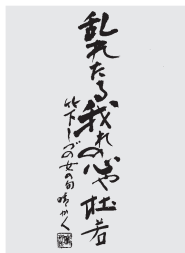 乱れたる我れの心や杜若
竹下しづの女の句 晴かく